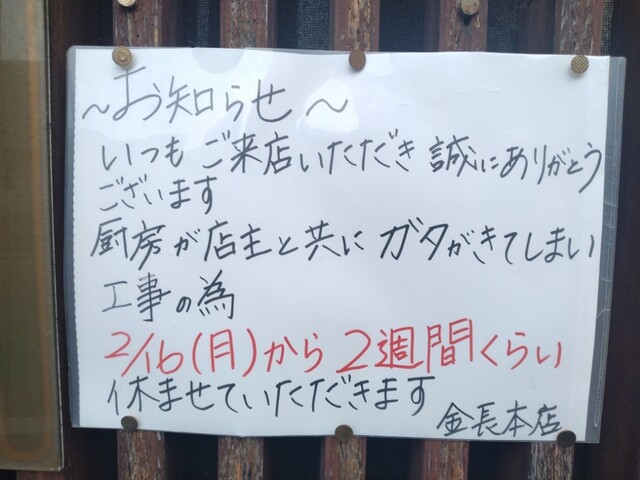 ～お知らせ～
いつもご来店いただき誠にありがとう
ございます
厨房が店主と共にガタがきてしまい
工事の為
2/16(月)から2週間くらい
休ませていただきます
金長本店